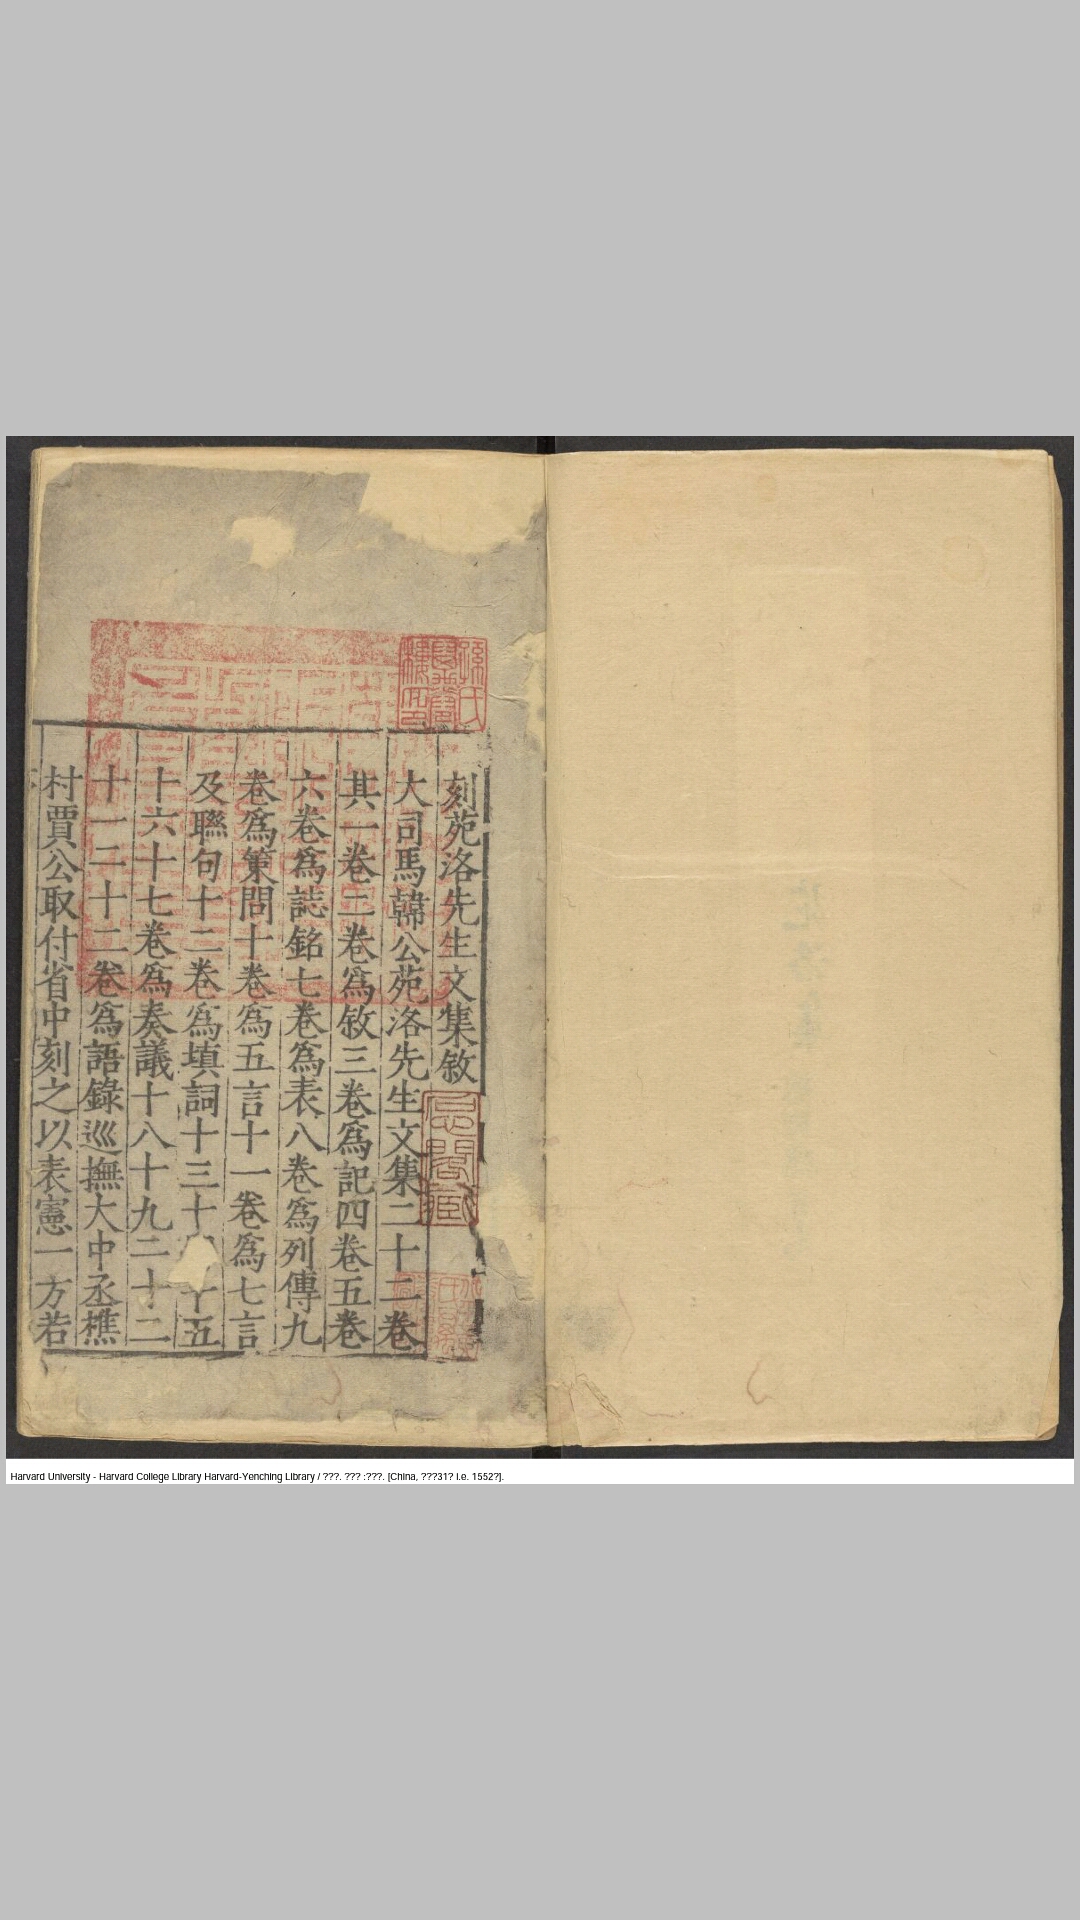 刻苑洛先生文集敘
大司馬韓公苑洛先生文集二十二卷
其一卷二卷爲敘三卷爲記四卷五卷
六卷爲誌銘七卷爲表八卷爲列傳九
卷爲策問十卷爲五言十一卷爲七言
及聯句十二卷爲填詞十三十 十五
十六十七卷爲奏議十八十九二十二
十一二十二卷爲語錄巡撫大中丞樵
村賈公取付省中刻之以表憲一方若
Harvard University - Harvard College Library Harvard-Yenching Library / ???. ??? :???. [China, ???31? i.e. 1552?].